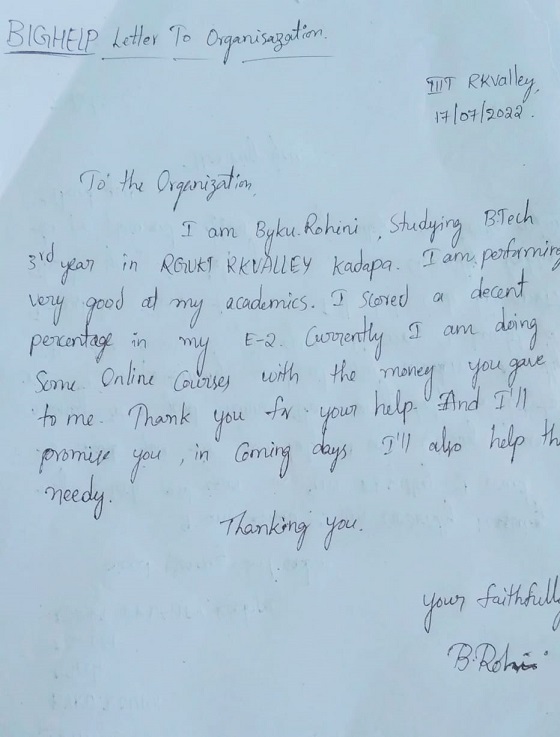 BIGHELP Letter To Organisazation.
IIIT RKValley,
17/07/2022.
To the Organization,
I am Byku.Rohini, Studying BTech
3rd year in RGUKT RKVALLEY Kadapa. I am performing
very good at my academics. I scored a decent
percentage in my E-2. Currently I am doing
Some Online Courses with the money you gave
to me. Thank you for your help. And I'll
promise you, in Coming days I'll also help th
needy.
Thanking you.
your faithfull
B.Rohini.